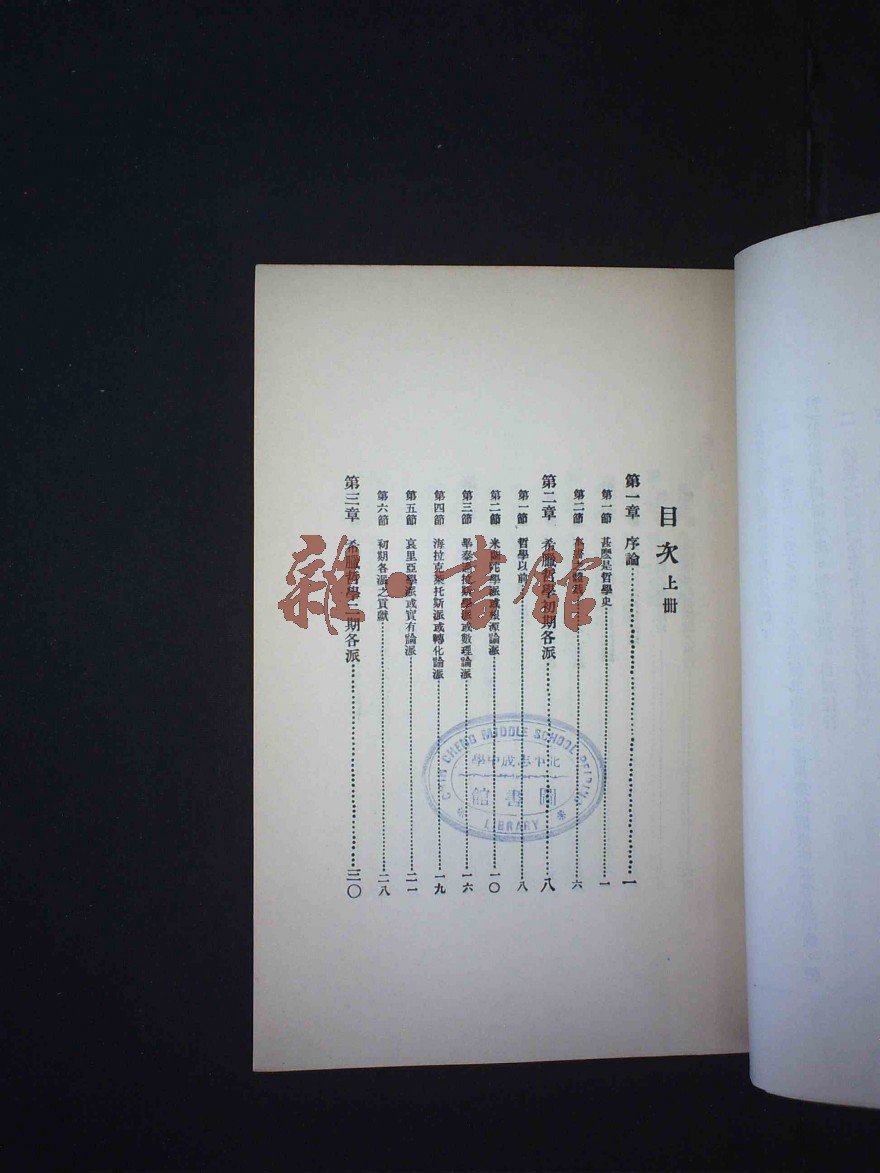 目次 上冊
第一章 序論 一
第一節 甚麼是哲學史 一
第二節 六
第二章 希臘哲學初期各派 八
第一節 哲學以前 八
第二節 米 學派或 源論派 一〇
第三節 畢 拉斯學派或數理論派 一六
第四節 海拉克萊托斯派或轉化論派 一九
第五節 哀里亞學派或實有論派 二一
第六節 初期各派之貢獻 二八
第三章 希臘哲學二期各派 三〇
雜·書館
CHIH CHENG MIDDLE SCHOOL PEIPING
學中成志平北
館書圖
LIBRARY